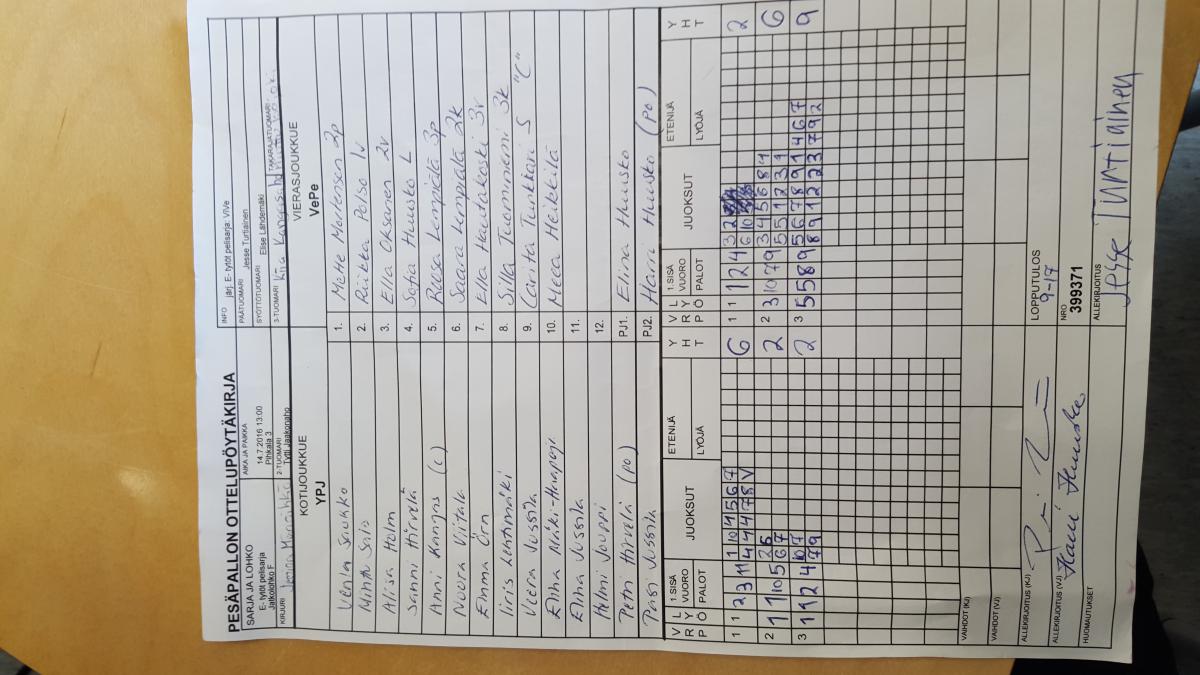 PESÄPALLON OTTELUPÖYTÄKIRJA
SARJA JA LOHKO
E- tytöt pelisarja
Jatkolohko F
AIKA JA PAIKKA
14.7.2016 13:00
Pihkala 3
INFO järj. E- tytöt pelisarja: ViVe
PÄÄTUOMARI Jesse Turtiainen
SYÖTTÖTUOMARI Elise Lähdemäki
KIRJURI
2-TUOMARI
Tytti Jaakonaho
3-TUOMARI Kiia
TAKARAJATUOMARI
KOTIJOUKKUE
YPJ
VIERASJOUKKUE
VePe
Venla Saukko 1. Mette Mortensen 2p
Minttu Salo 2. Päikka Pelso 1v
Alisa Holm 3. Ella Oksanen 2v
Sanni Hirvelä 4. Sofia Huusko L
Anni Kangas (c) 5. Raisa Lempiälä 3p
Noora Viitala 6. Saara Lumpiala 2k
Emma Örn 7. Ella Hautakoski 3v
Iiris Lehtimäki 8. Silla Tuomniemi 3k
Veera Jussila 9. Carita Tunkkari S "C"
Elina Mäki-Haapoja 10. Meea Heikkilä
Elina Jussila 11.
Helmi Jouppi 12.
Petri Hirvelä (po) PJ1. Elina Huusko
Pasi Jussila PJ2. Harri Huusko (po)
V R P
L Y Ö
1.SISÄ
VUORO
PALOT
JUOKSUT
ETENIJÄ
LYÖJÄ
Y H T
V R P
L Y Ö
1.SISÄ
VUORO
PALOT
JUOKSUT
ETENIJÄ
LYÖJÄ
Y H T
1 1 2 3 11 1 10 4 5 6 7 6
4 4 4 7 8 V
1 1 1 2 4 3 2 2
6 10
2 1 1 10 5 2 5 2
6 7
2 3 10 7 9 3 4 5 6 8 1 6
5 5 1 2 3 1
3 1 1 2 4 10 7 2
7 9
3 5 5 8 9 5 6 7 8 9 1 4 6 7 9
8 9 1 2 2 3 7 9 2
VAIHDOT (KJ)
VAIHDOT (VJ)
ALLEKIRJOITUS (KJ)
LOPPUTULOS
9-17
ALLEKIRJOITUS (VJ) Harri Huusko
NRO
399371
HUOMAUTUKSET
ALLEKIRJOITUS
Jesse Turtiainen